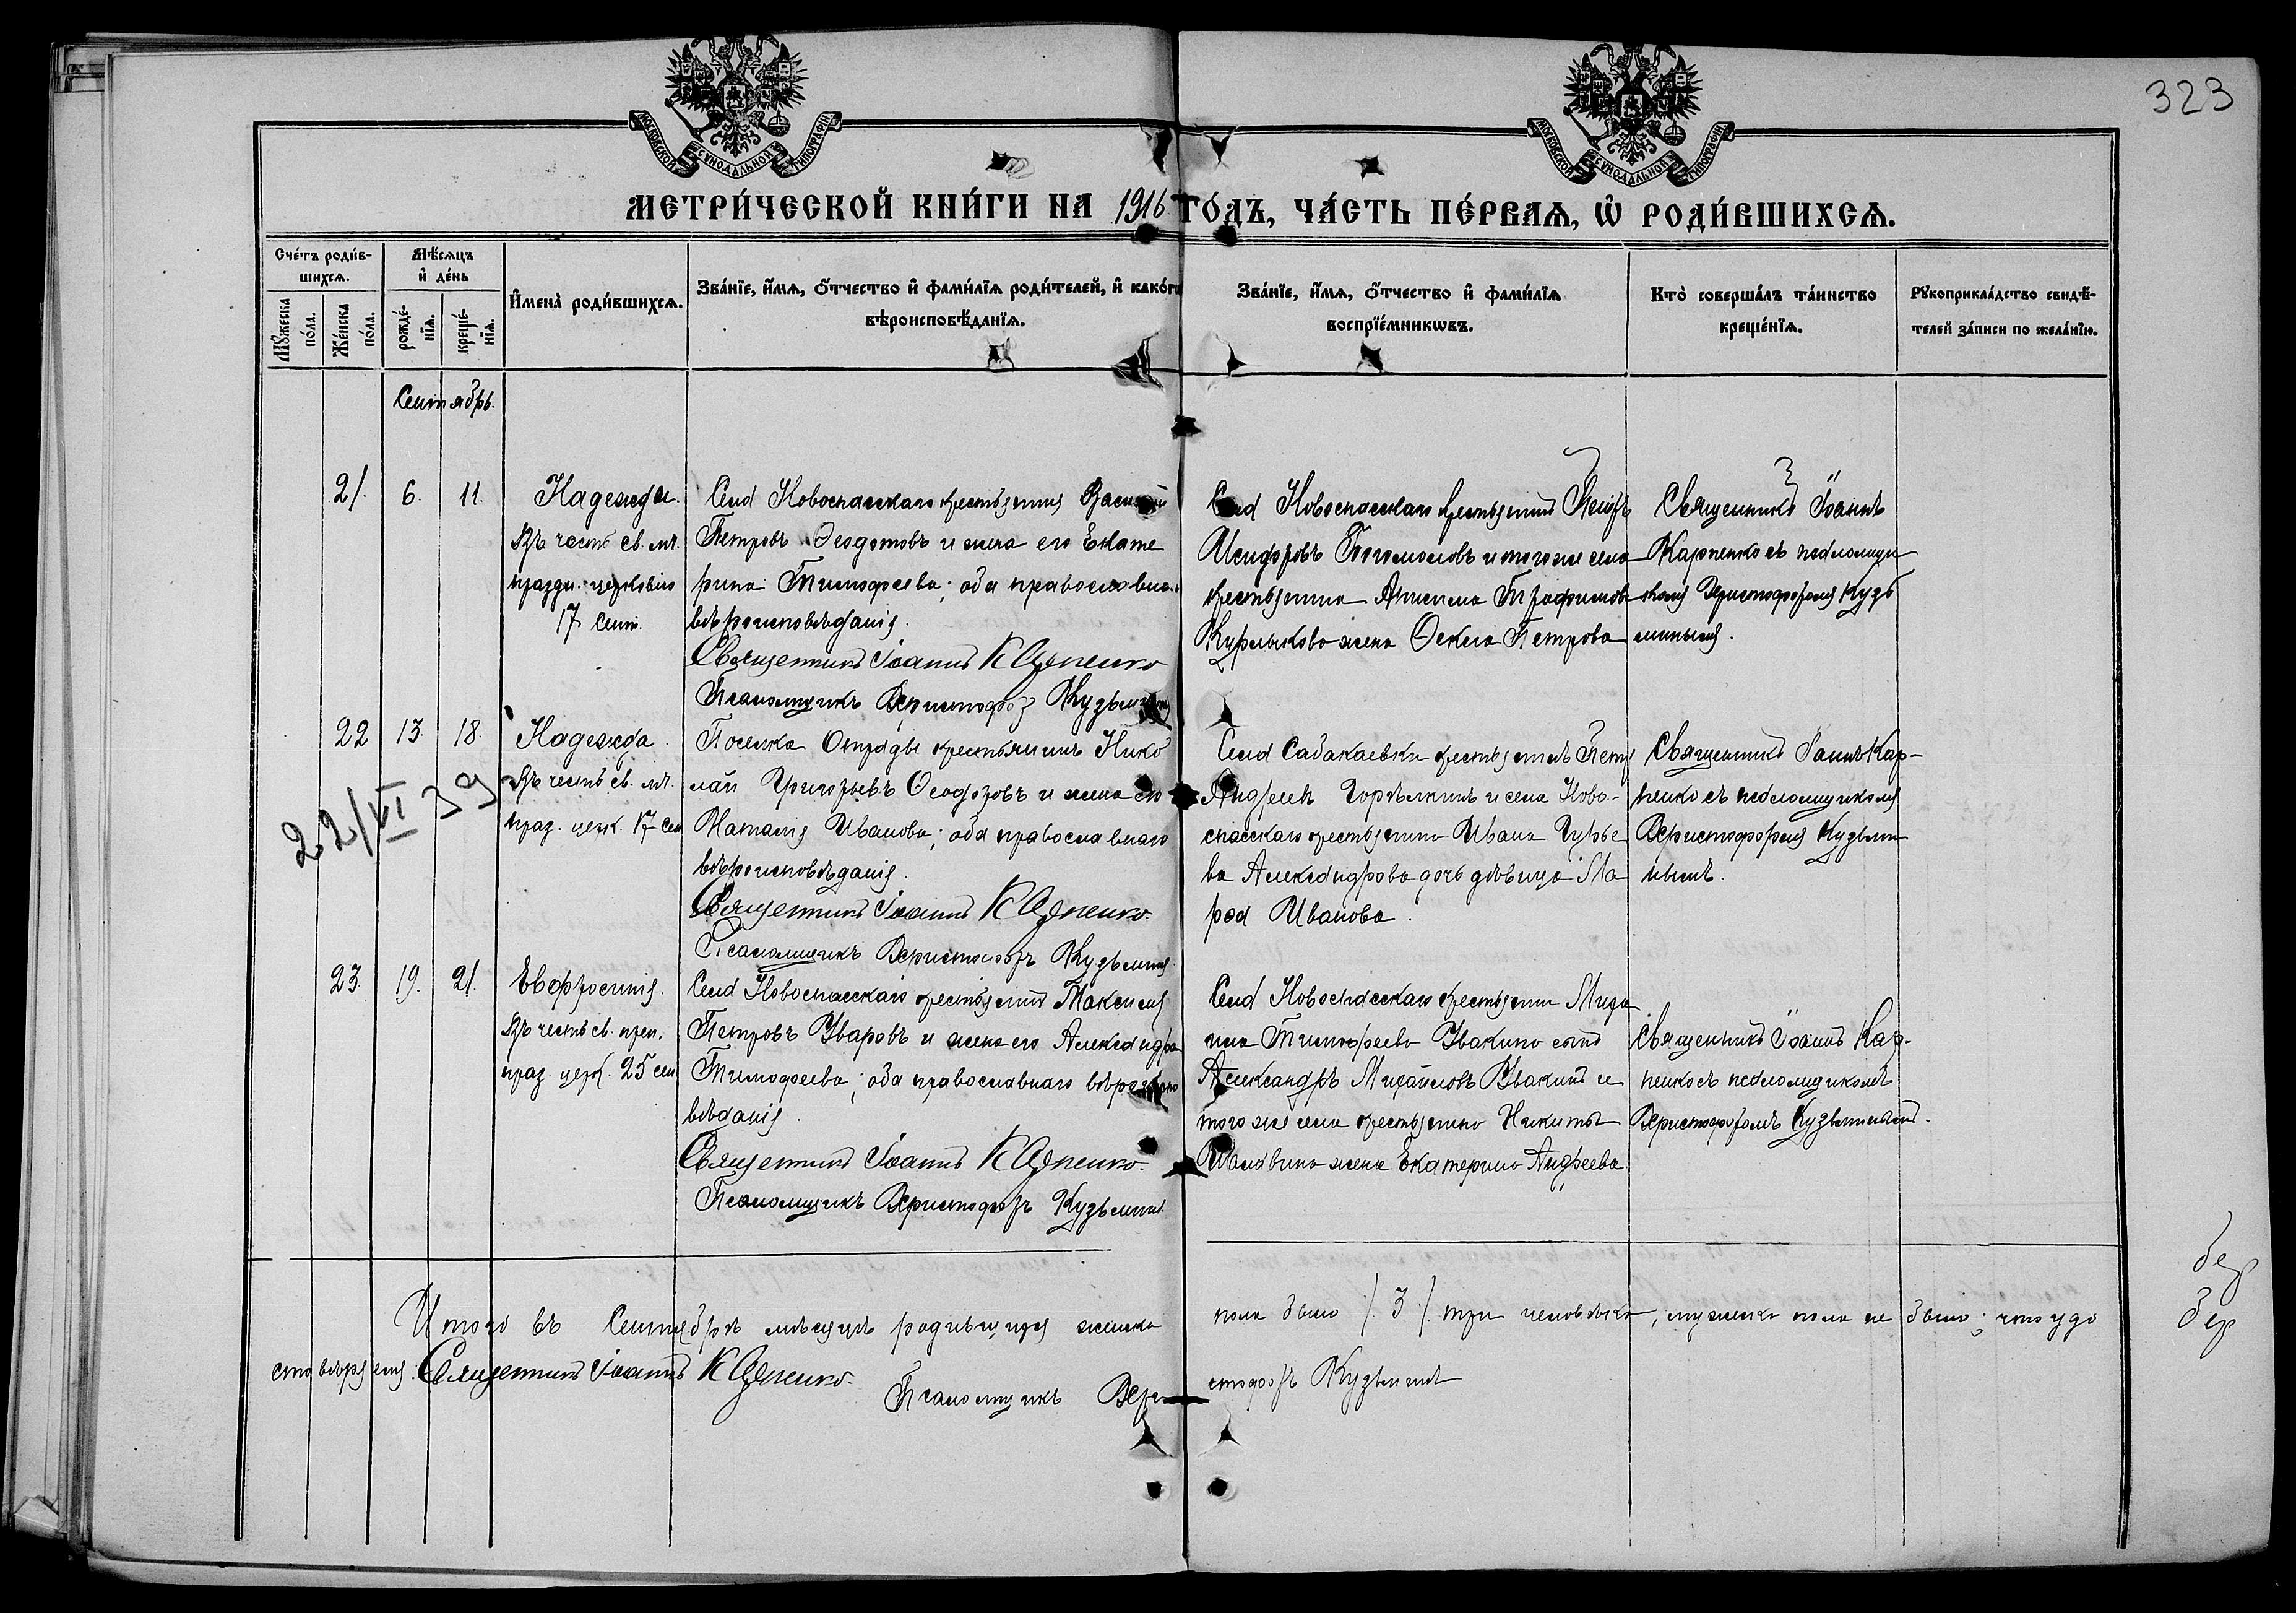 323
МОСКОВСКОЙ СѴНОДАЛЬНОЙ ТИПОГРАФІИ
МОСКОВСКОЙ СѴНОДАЛЬНОЙ ТИПОГРАФІИ
МЕТРИ́ЧЕСКОЙ КНИ́ГИ НА 1916 ГО́ДЪ, ЧА́СТЬ ПЕ́РВАѦ, Ѡ҆ РОДИ́ВШИХСѦ.
Сче́тъ роди́в-
шихсѧ.
Мꙋ́жеска
по́ла.
Же́нска
по́ла.
Мѣ́сѧцъ
и҆ де́нь
рожде́-
нїѧ.
креще́-
нїѧ.
И҆мена̀ роди́вшихсѧ.
Зва́нїе, и҆́мѧ, ѻ҆́тчество и҆ фами́лїѧ роди́телей, и҆ како́гѡ
вѣроисповѣ́данїѧ.
Зва́нїе, и҆́мѧ, ѻ҆́тчество и҆ фами́лїѧ
воспрїе́мникѡвъ.
Кто̀ соверша́лъ та́инство
креще́нїѧ.
Рꙋкоприкла́дство свидѣ́-
телей за́писи по жела́нїю.
Сентябрь.
21. 6. 11.
Надежда.
Въ честь св. мч.
праздн. церковію
17 сент.
Села Новоспасскаго крестьянинъ Василій
Петровъ Ѳедотовъ и жена его Екате
рина Тимофеева; оба православна
вѣроисповѣданія.
Священникъ Іоаннъ Карпенко
Псаломщикъ Христофоръ Кузьминъ
Села Новоспасскаго крестьянинъ
Исидоровъ Богомоловъ и того же села
крестьянина Трофимова
жена Ѳекла Петрова
Священникъ Іоаннъ
Карпенко съ псаломщи
комъ Христофоромъ Кузь
минымъ.
22 13. 18.
Надежда.
Въ честь св. мч.
праз. церк. 17 сен
22/VI 39
Поселка Отрады крестьянинъ Нико
лай Григорьевъ Ѳеодоровъ и жена его
Наталія Иванова; оба православнаго
вѣроисповѣданія.
Священникъ Іоаннъ Карпенко.
Псаломщикъ Христофоръ Кузьминъ.
Села Сабакаевки крестьянинъ Петръ
Андреевъ Горѣлкинъ и села Ново-
спасскаго крестьянина Ивана Гурье
ва Александрова дочь дѣвица Ма
рѳа Иванова.
Священникъ Іоаннъ Кар-
пенко съ псаломщикомъ
Христофоромъ Кузьми
нымъ.
23. 19. 21.
Евфросинія.
Въ честь св. преп.
праз. церк. 25 сен
Села Новоспасскаго крестьянинъ Максимъ
Петровъ Уваровъ и жена его Александра
Тимофеева; оба православнаго вѣроиспо
вѣданія.
Священникъ Іоаннъ Карпенко.
Псаломщикъ Христофоръ Кузьминъ.
Села Новоспасскаго крестьянин Миха
ила Тимофеева Увакина сынъ
Александръ Михайловъ Увакинъ и
того же села крестьянина Никиты
жена Екатерина Андреева.
Священникъ Іоаннъ Кар-
пенко съ псаломщикомъ
Христофоромъ Кузьминымъ.
Итого въ Сентябрѣ мѣсяцѣ родившихся женска
пола было /3/ три человѣка, мужеска пола не было; что удо
стовѣряемъ: Священникъ Іоаннъ Карпенко.
Псаломщикъ Хри
стофоръ Кузьминъ